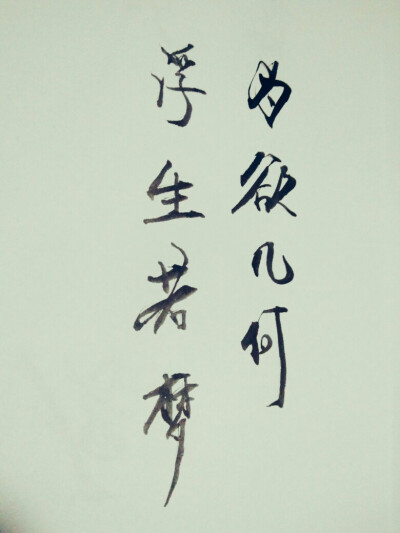 浮生若梦
为欲几何